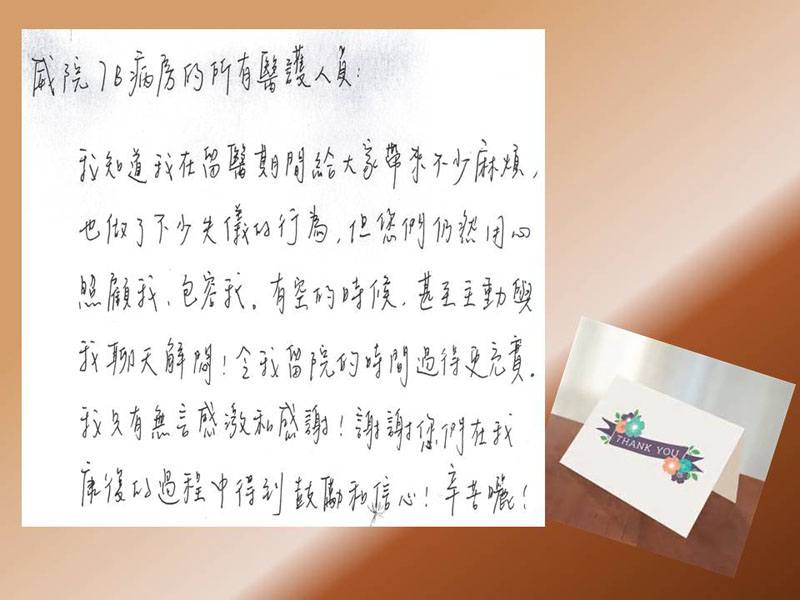 威院7B病房的所有醫護人員:
我知道我在留醫期間給大家帶來不少麻煩,
也做了不少失儀的行為,但您們仍然用心
照顧我、包容我。有空的時候,甚至主動與
我聊天解悶!令我留院的時間過得更充實。
我只有無言感激和感謝!謝謝您們在我
康復的過程中得到鼓勵和信心!辛苦曬!
THANK YOU